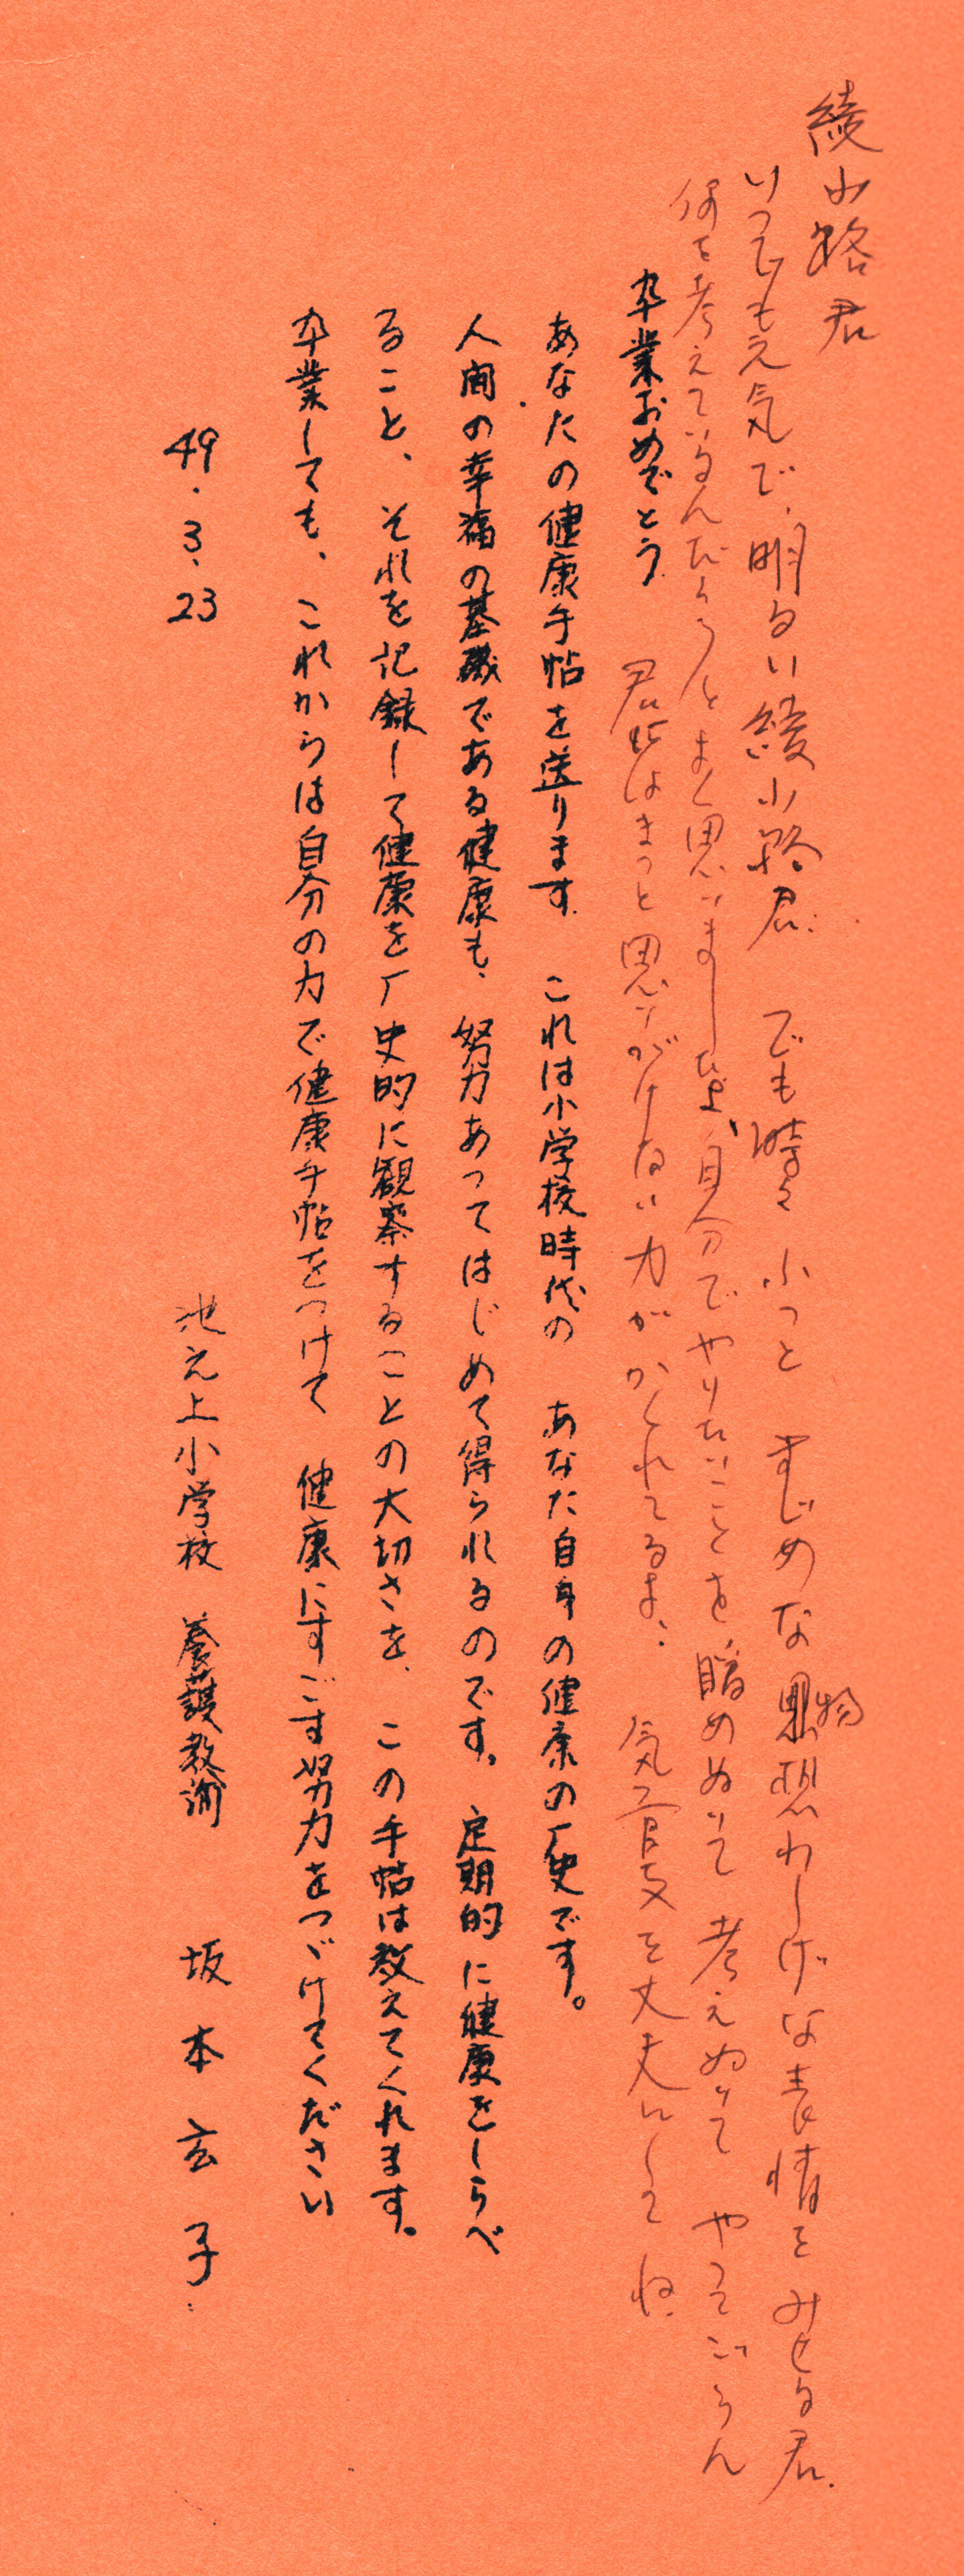 綾小路君
いつでも元気で、明るい綾小路君. でも時々 ふっと まじめな物想わしげな表情をみせる君.
何を考えているんだろうとよく思いましたが、自分でやりたいことを暖めぬいて 考えぬいて やってごらん
君にはきっと思いがけない力がかくれてるよ. 気管支を丈夫にしてね.
卒業おめでとう.
あなたの健康手帖を送ります. これは小学校時代の あなた自身の健康の厂史です。
人间の幸福の基礎である健康も、努力あってはじめて得られるのです。定期的に健康をしらべ
ること、それを記録して健康を厂史的に観察することの大切さを、この手帖は教えてくれます。
卒業しても、これからは自分の力で健康手帖をつけて 健康にすごす努力をつづけてください
49.3.23
池之上小学校 養護教諭 坂本玄子